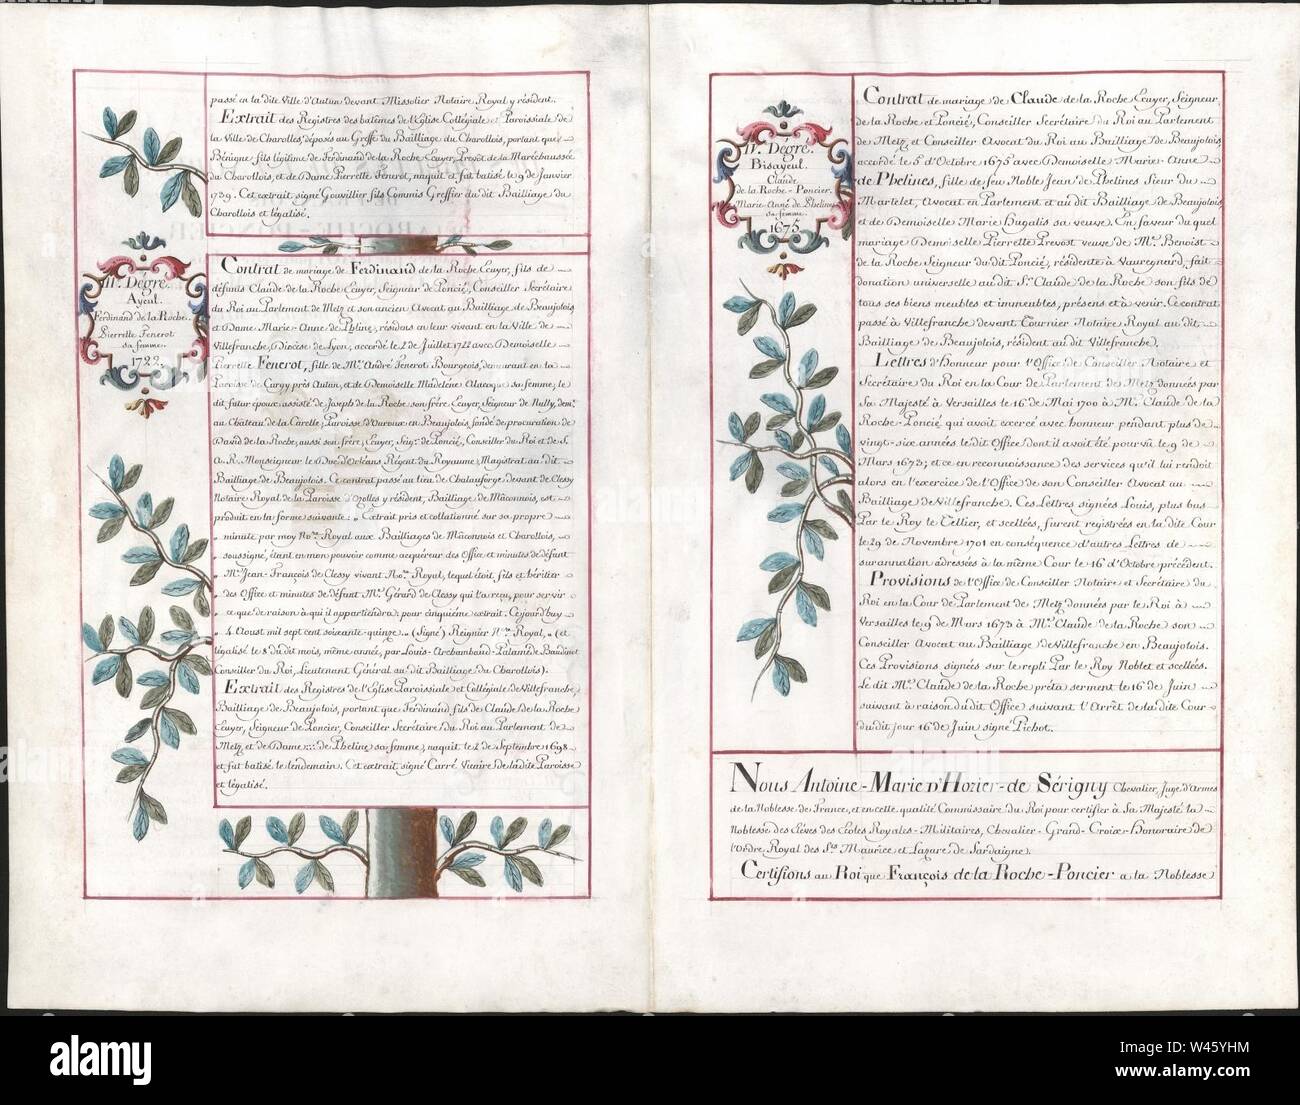 passé en la dite Ville d'Autun devant Missolier Notaire Royal y résident.
Extrait des Registres des batêmes de l'Eglise Collégiale et Paroissiale de
la Ville de Charolles, déposés au Greffe du Bailliage du Charollois, portant que
Bénigne fils légitime de Ferdinand de la Roche Ecuyer, Prevôt de la Maréchaussée
du Charollois, et de Dame Pierrette Fenerot, naquit et fut batisé le 9 de Janvier
1739. Cet extrait signé Gouvillier fils Commis Greffier au dit Bailliage du
Charollois et légalisé.
III. Dégré.
Ayeul.
Ferdinand de la Roche.
Pierrette Fenerot
sa femme.
1722.
Contrat de mariage de Ferdinand de la Roche Ecuyer, fils de
défunts Claude de la Roche Ecuyer, Seigneur de Poncié, Conseiller Secrétaire
du Roi au Parlement de Metz et son ancien Avocat au Bailliage de Beaujolois
et Dame Marie-Anne de Phline, résidens en leur vivant en la Ville de
Villefranche, Diocèse de Lyon, accordé le 2 de Juillet 1722 avec Demoiselle
Pierrette Fenerot, fille de Mr. André Fenerot Bourgeois, demeurant en la
Paroisse de Curgy près Autun, et de Demoiselle Madeleine Alacoque sa femme; le
dit futur époux assisté de Joseph de la Roche son frére Ecuyer, Seigneur de Nully, demt.
au Château de la Carelle, Paroisse d'Ouroux en Beaujolois fondé de procuration de
David de la Roche, aussi son frére, Ecuyer, Seigr. de Poncié, Conseiller du Roi et de S.
A. R. Monseigneur le Duc d'Orléans Régent du Royaume, Magistrat au dit
Bailliage de Beaujolois. Ce contrat passé au lieu de Chalauforge devant de Clessy
Notaire Royal de la Paroisse d'Ozolles y résident, Bailliage de Mâconnois, est
produit en la forme suivante: „ Extrait pris et collationné sur sa propre
„ minute par moy Nore. Royal aux Bailliages de Mâconnois et Charollois,
„ soussigné, étant en mon pouvoir comme acquéreur des Office et minutes de défunt
„ Mr. Jean-François de Clessy vivant Nore. Royal, lequel étoit fils et héritier
„ des Office et minutes de défunt Mr. Gérard de Clessy qui l'a reçu, pour servir
„ ce que de raison à qui il appartiendra: pour cinquiéme extrait. Cejourd'huy
„ 4 Aoust mil sept cent soixante-quinze. „ (Signé) Reignier Nre. Royal, „ (et
légalisé le 8 du dit mois, même année, par Louis-Archambaud-Palamede Baudinot
Conseiller du Roi, Lieutenant Général au dit Bailliage du Charollois).
Extrait des Registres de l'Eglise Paroissiale et Collégiale de Villefranche,
Bailliage de Beaujolois, portant que Ferdinand fils de Claude de la Roche
Ecuyer, Seigneur de Poncier, Conseiller Secrétaire du Roi au Parlement de
Metz, et de Dame .... de Pheline sa femme, naquit le 2 de Septembre 1698
et fut batisé le lendemain. Cet extrait signé Carré Vicaire de la dite Paroisse
et légalisé.
IV. Dégré.
Bisayeul.
Claude
de la Roche-Poncier.
Marie-Anne de Phelines
sa femme.
1675.
Contrat de mariage de Claude de la Roche Ecuyer, Seigneur
de la Roche et Poncié, Conseiller Secrétaire du Roi au Parlement
de Metz, et Conseiller Avocat du Roi au Bailliage de Beaujolois,
accordé le 5 d'Octobre 1675 avec Demoiselle Marie-Anne
de Phelines, fille de feu Noble Jean de Phelines Sieur du
Martelet, Avocat en Parlement et au dit Bailliage de Beaujolois
et de Demoiselle Marie Hugalis sa veuve. En faveur du quel
mariage Demoiselle Pierrette Prevost veuve de Mr. Benoist
de la Roche Seigneur du dit Poncié, résidente à Vauregnard, fait
donation universelle au dit Sr. Claude de la Roche son fils de
tous ses biens meubles et immeubles, présens et à venir. Ce contrat
passé à Villefranche devant Tournier Notaire Royal au dit
Bailliage de Beaujolois, résident au dit Villefranche).
Lettres d'Honneur pour l'Office de Conseiller Notaire et
Secrétaire du Roi en la Cour de Parlement de Metz données par
Sa Majesté à Versailles le 16 de Mai 1700 à Mr. Claude de la
Roche-Poncié, qui avoit exercé avec honneur pendant plus de
vingt-six années le dit Office dont il avoit été pourvû le 9 de
Mars 1673; et ce en reconnoissance des services qu'il lui rendoit
alors en l'exercice de l'Office de son Conseiller Avocat au
Bailliage de Villefranche. Ces Lettres signées Louis, plus bas
Par le Roy le Tellier, et scellées, furent registrées en la dite Cour
le 29 de Novembre 1701 en conséquence d'autres Lettres de
surannation adressées à la même Cour le 16 d'Octobre précédent.
Provisions de l'Office de Conseiller Notaire et Secrétaire du
Roi en la Cour de Parlement de Metz données par le Roi à
Versailles le 9 de Mars 1673 à Mr. Claude de la Roche son
Conseiller Avocat au Bailliage de Villefranche en Beaujolois.
Ces Provisions signées sur le repli Par le Roy Noblet et scellées.
Le dit Mr. Claude de la Roche prêta serment le 16 de Juin
suivant à raison du dit Office suivant l'Arrêt de la dite Cour
du dit jour 16 de Juin signé Pichot.
Nous Antoine-Marie D'Hozier-de Sérigny Chevalier, Juge d'Armes
de la Noblesse de France, et en cette qualité Commissaire du Roi pour certifier à Sa Majesté la
Noblesse des Elèves des Ecoles Royales-Militaires, Chevalier-Grand-Croix-Honoraire de
l'Ordre Royal des Sts. Maurice et Lazare de Sardaigne).
Certifions au Roi que François de la Roche-Poncier a la Noblesse
alamy
Image ID: W45YHM
www.alamy.com